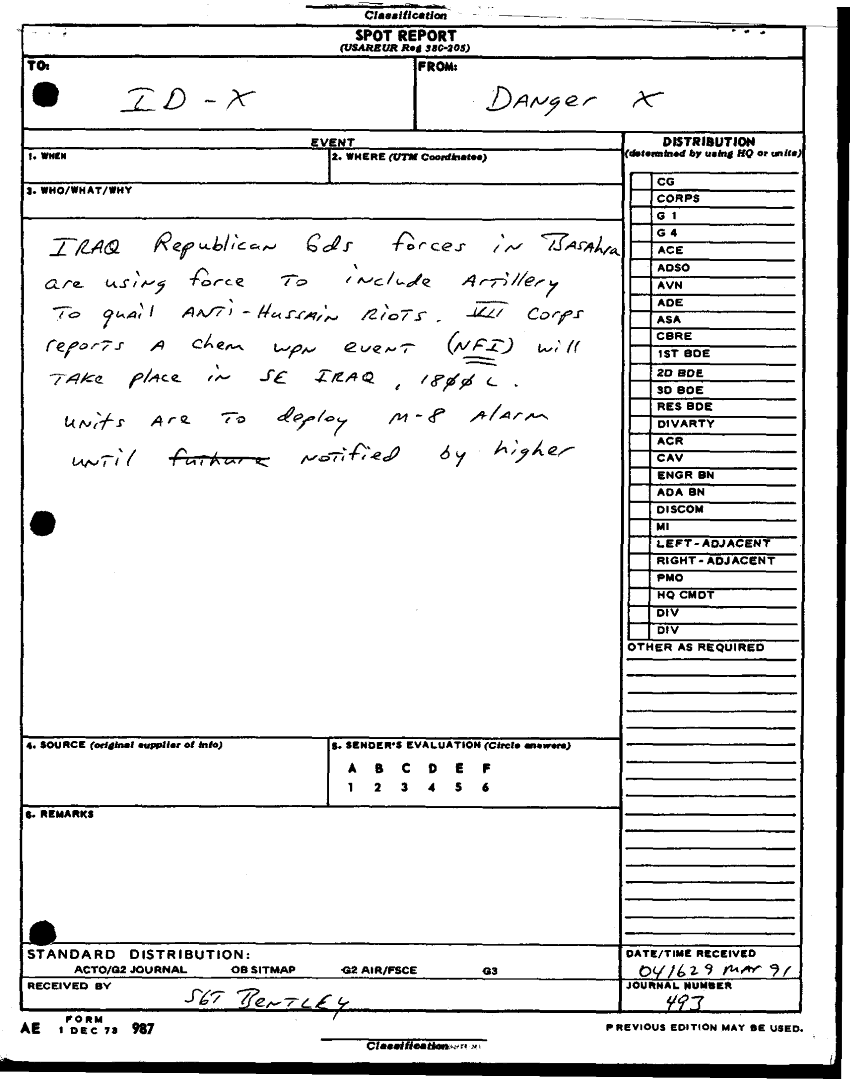 Classification
SPOT REPORT
(USAREUR Reg 380-205)
TO:
ID-X
FROM:
DANger X
EVENT
1. WHEN
2. WHERE (UTM Coordinates)
3. WHO/WHAT/WHY
IRAQ Republican Gds forces in BASAhra
are using force To include Artillery
To quail ANTi-HussAiN RioTs. VII Corps
reports A chem wpn event (NFI) will
TAKe plAce in SE IRAQ, 1800 L.
units Are To deploy M-8 AlArm
UNTil furthure NoTified by higher
DISTRIBUTION
(determined by using HQ or units)
CG
CORPS
G 1
G 4
ACE
ADSO
AVN
ADE
ASA
CBRE
1ST BDE
2D BDE
3D BDE
RES BDE
DIVARTY
ACR
CAV
ENGR BN
ADA BN
DISCOM
MI
LEFT-ADJACENT
RIGHT-ADJACENT
PMO
HQ CMDT
DIV
DIV
OTHER AS REQUIRED
4. SOURCE (original supplier of info)
5. SENDER'S EVALUATION (Circle answers)
A B C D E F
1 2 3 4 5 6
6. REMARKS
STANDARD DISTRIBUTION:
ACTO/G2 JOURNAL OB SITMAP G2 AIR/FSCE G3
RECEIVED BY
SGT BENTLEY
DATE/TIME RECEIVED
041629 MAr 91
JOURNAL NUMBER
493
AE FORM 1 DEC 73 987
PREVIOUS EDITION MAY BE USED.
Classification